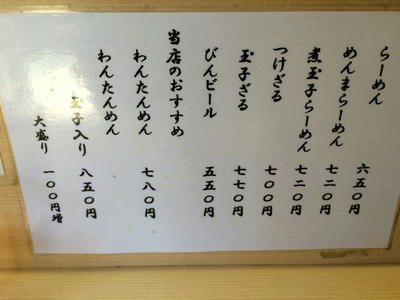 らーめん 六五〇円
めんまらーめん 七二〇円
煮玉子らーめん 七二〇円
つけざる 七〇〇円
玉子ざる 七七〇円
びんビール 五五〇円
当店のおすすめ
わんたんめん 七八〇円
わんたんめん
玉子入り 八五〇円
大盛り 一〇〇円増